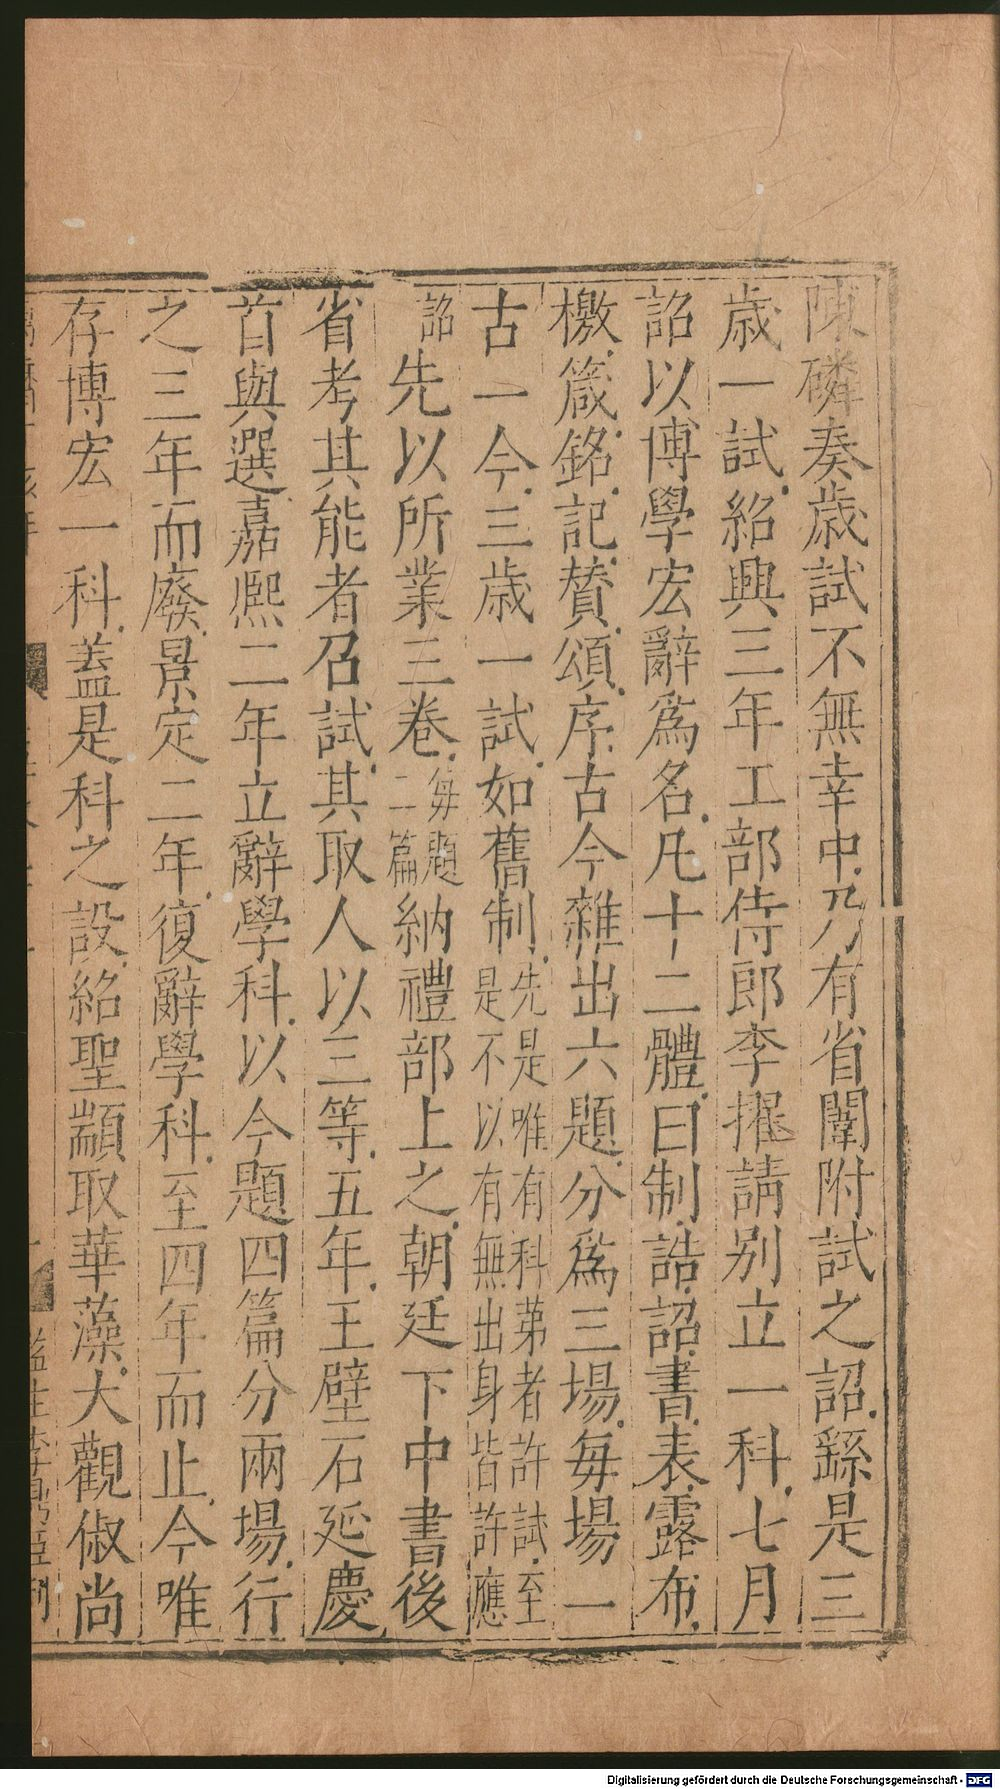 陳磷奏歲試不無幸中乃有省闈附試之詔繇是三
歲一試紹興三年工部侍郎李擢請别立一科七月
詔以博學宏辭爲名凡十二體曰制誥詔書表露布
檄箴銘記贊頌序古今雜出六題分爲三場每場一
古一今三歲一試如舊制先是唯有科苐者許試至是不以有無出身皆許應
詔先以所業三卷每題二篇納禮部上之朝廷下中書後
省考其能者召試其取人以三等五年王壁石延慶
首與選嘉熙二年立辭學科以今題四篇分兩場行
之三年而廢景定二年復辭學科至四年而止今唯
存博宏一科蓋是科之設紹聖顓取華藻大觀俶尚
Digitalisierung gefördert durch die Deutsche Forschungsgemeinschaft - DFG